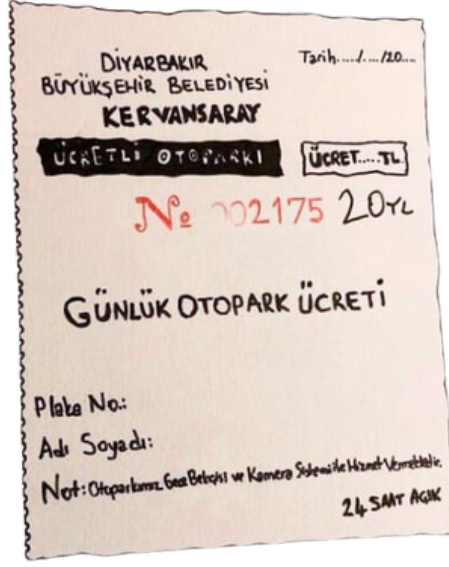 DİYARBAKIR
BÜYÜKŞEHİR BELEDİYESİ
KERVANSARAY
Tarih...../..../20....
ÜCRETLİ OTOPARKI
ÜCRET.....TL.
№ 002175 20TL
GÜNLÜK OTOPARK ÜCRETİ
Plaka No.:
Adı Soyadı:
Not: Otoparkımız Gece Bekçisi ve Kamera Sistemi ile Hizmet Vermektedir.
24 SAAT AÇIK